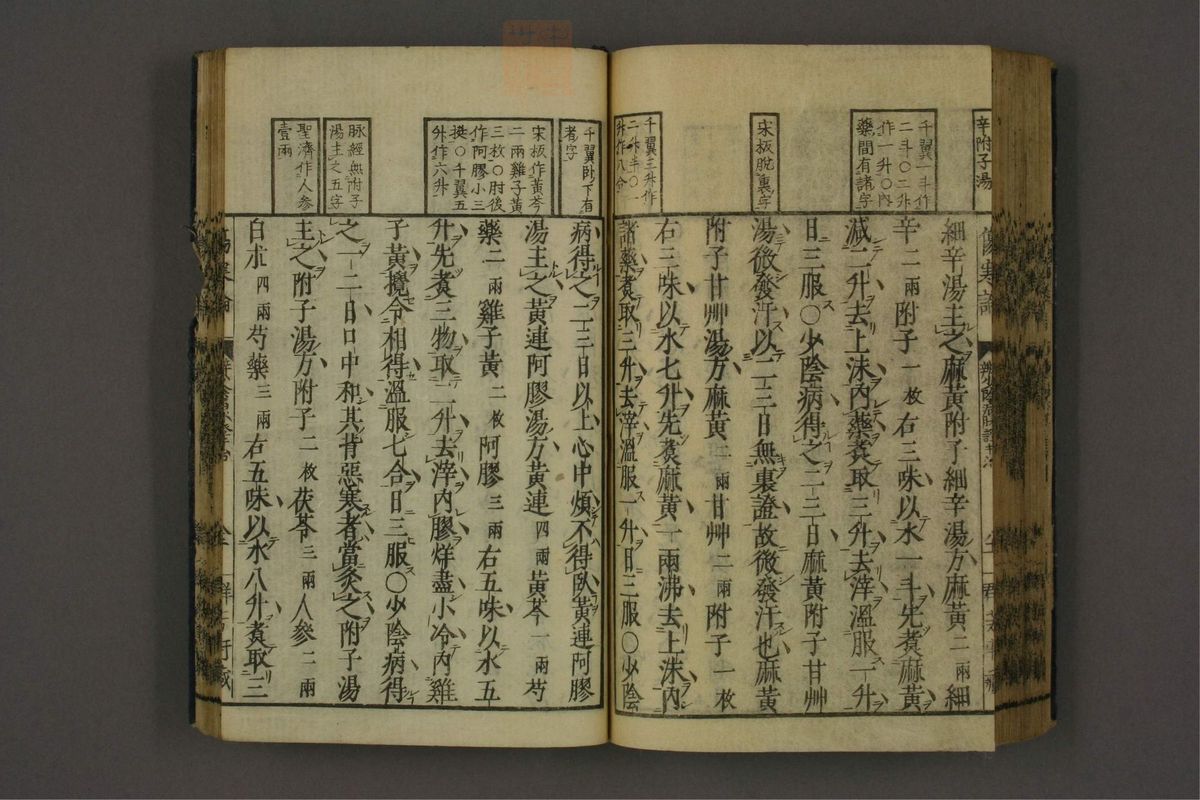 辛附子湯
千翼一斗作
二斗〇二升
作一升〇內
藥間有諸字
宋板脫裏字
千翼三升作
二升半〇一
升作八合
細辛湯主之麻黃附子細辛湯方麻黃二兩細
辛二兩附子一枚右三味以水一斗先煑麻黃
減二升去上沫內藥煑取三升去滓溫服一升
日三服〇少陰病得之二三日麻黃附子甘艸
湯微發汗以二三日無裏證故微發汗也麻黃
附子甘艸湯方麻黃二兩甘艸二兩附子一枚
右三味以水七升先煑麻黃一兩沸去上沫內
諸藥煑取三升去滓溫服一升日三服〇少陰
千翼臥下有
者字
宋板作黃芩
二兩雞子黃
三枚〇肘後
作阿膠小三
挺〇千翼五
升作六升
脉經無附子
湯主之五字
聖濟作人參
壹兩
病得之二三日以上心中煩不得臥黃連阿膠
湯主之黃連阿膠湯方黃連四兩黃芩一兩芍
藥二兩雞子黃二枚阿膠三兩右五味以水五
升先煑三物取二升去滓內膠烊盡小冷內雞
子黃攪令相得溫服七合日三服〇少陰病得
之一二日口中和其背惡寒者當灸之附子湯
主之附子湯方附子二枚茯苓三兩人參二兩
白朮四兩芍藥三兩右五味以水八升煑取三